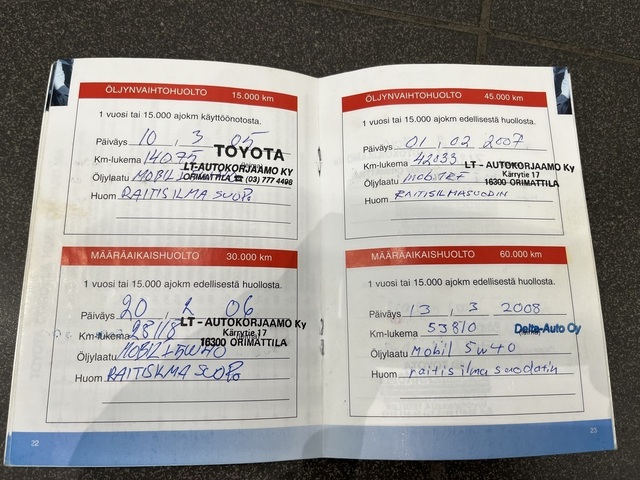 ÖLJYNVAIHTOHUOLTO 15.000 km
1 vuosi tai 15.000 ajokm käyttöönotosta.
Päiväys 10 . 3 05
TOYOTA
Km-lukema 14075
LT-AUTOKORJAAMO KY
Öljylaatu MOBIL
ORIMATTILA ☎ (03) 777 4498
Huom RAITISILMA SUOD.
MÄÄRÄAIKAISHUOLTO 30.000 km
1 vuosi tai 15.000 ajokm edellisestä huollosta.
Päiväys 20 . 2 06
LT - AUTOKORJAAMO Ky
Kärrytie 17
Km-lukema 28118
16300 ORIMATTILA
Öljylaatu MOBIL 5W40
Huom RAITISILMA SUOD.
22
ÖLJYNVAIHTOHUOLTO 45.000 km
1 vuosi tai 15.000 ajokm edellisestä huollosta.
Päiväys 01 . 02 2007
Km-lukema 42033
LT - AUTOKORJAAMO Ky
Kärrytie 17
Öljylaatu
16300 ORIMATTILA
Huom RAITISILMASUODIN
MÄÄRÄAIKAISHUOLTO 60.000 km
1 vuosi tai 15.000 ajokm edellisestä huollosta.
Päiväys 13 . 3 2008
Km-lukema 53810
Delta-Auto Oy
Öljylaatu Mobil 5w40
Huom raitisilma suodatin
23